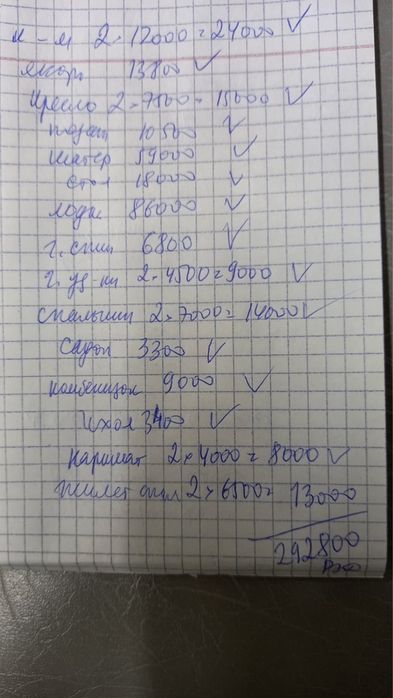 к-м 2×12000=24000 ✓
якорь 13800 ✓
кресло 2×7500=15000 ✓
10500 ✓
шатер 59000 ✓
стол 18000 ✓
лодка 86000 ✓
г. спин 6800 ✓
г. уд-ки 2×4500=9000 ✓
спальники 2×7000=14000 ✓
садок 3300 ✓
комбенизон 9000 ✓
чехол 3400 ✓
каримат 2×4000=8000 ✓
жилет спал 2×6500= 13000
292800